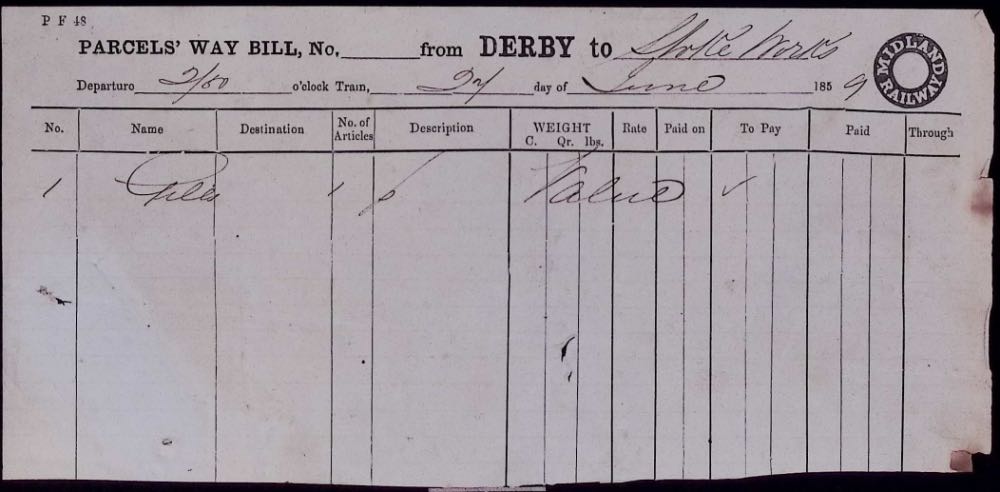 P F 48
PARCELS' WAY BILL, No. from DERBY to Works
Departure 2/50 o'clock Train, day of June 1859
MIDLAND RAILWAY
No. Name Destination No. of Articles Description WEIGHT C. Qr. lbs. Rate Paid on To Pay Paid Through
1 Giles 1 p Value ✓